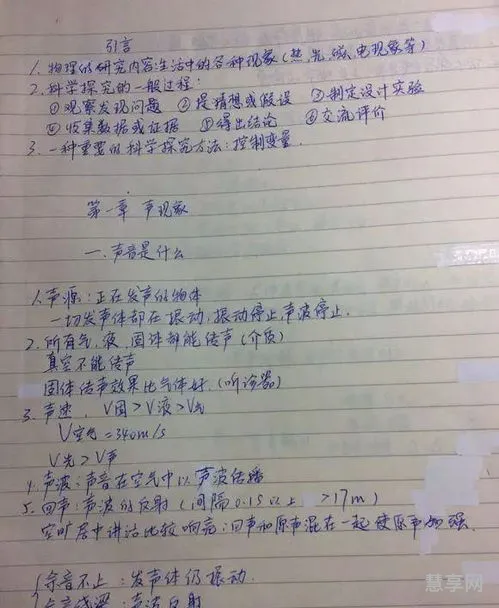 引言
1. 物理的研究内容:生活中的各种现象(热,光,磁,电现象等)
2. 科学探究的一般过程:
①观察发现问题 ②提猜想或假设 ③制定设计实验
④收集数据或证据 ⑤得出结论 ⑥交流评价
3. 一种重要的科学探究方法:控制变量.
第一章 声现象
一.声音是什么
1.声源:正在发声的物体
一切发声体都在振动,振动停止,声波停止.
2. 所有气,液,固体都能传声(介质)
真空不能传声
固体传声效果比气体好.(听诊器)
3. 声速, V固>V液>V气
V空气=340m/s
V光>V声
4. 声波:声音在空气中以声波传播
5. 回声:声波的反射(间隔0.1s以上 >17m)
空旷居中讲话比较响亮:回声和原声混在一起使原声加强.
余音不止:发声体仍振动.
余音绕梁:声波反射
慧享网